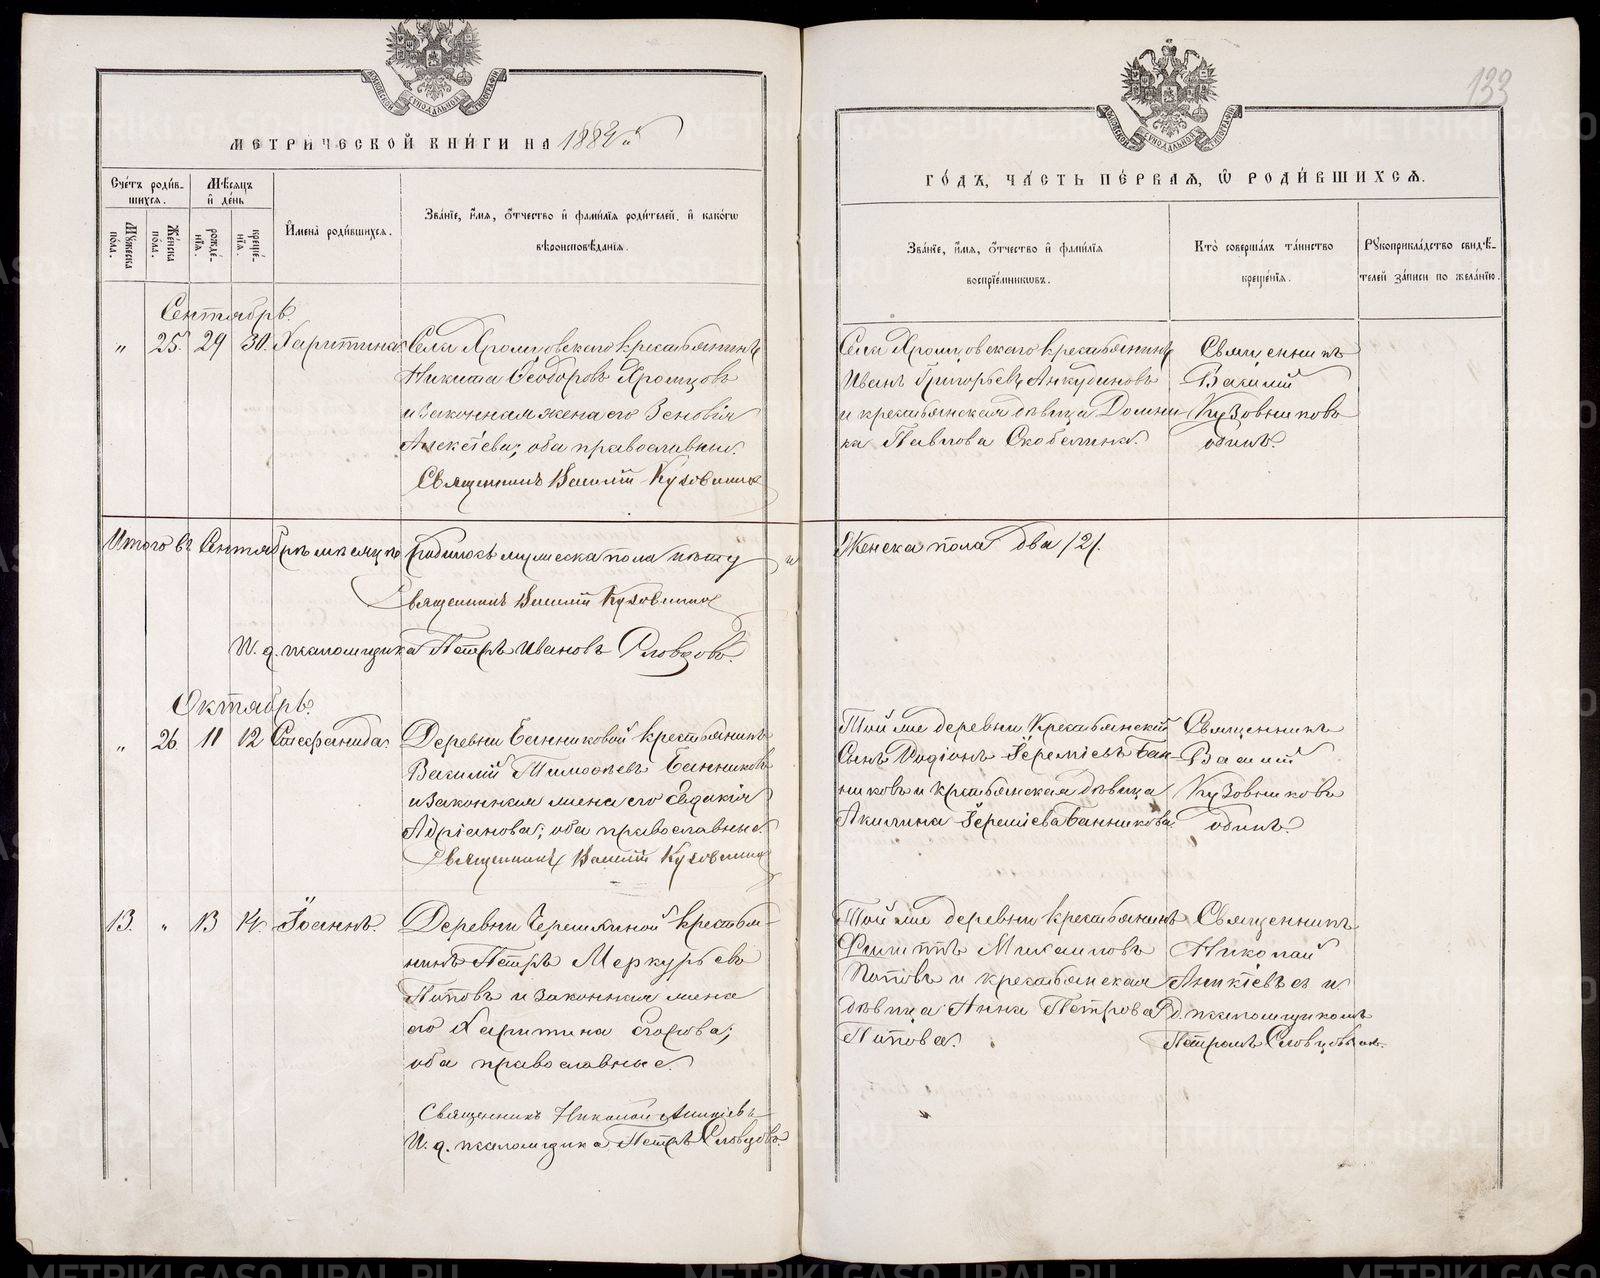 МЕТРИ́ЧЕСКОЙ КНИ́ГИ НА 1882 й
Сче́тъ роди́в-
шихсѧ.
Мѣ́сѧцъ
и҆ де́нь
Мꙋ́жеска
по́ла.
Же́нска
по́ла.
рожде́-
нїѧ.
креще́-
нїѧ.
И҆мена̀ роди́вшихсѧ.
Зва́нїе, и҆́мѧ, ѻ҆́тчество и҆ фами́лїѧ роди́телей, и҆ како́гѡ
вѣроисповѣ́данїѧ.
Сентябрь.
„ 25. 29 30. Харитина.
Села Хромцовскаго крестьянинъ
Никита Ѳеодоровъ Хромцовъ
и законная жена его Зеновія
Алексіева; оба православные.
Священникъ Василій Кузовниковъ
Итого въ Сентябрѣ мѣсяцѣ родилось мужеска пола пять и
Священникъ Василій Кузовниковъ
И. д. псаломщика Петръ Ивановъ Словцовъ.
Октябрь.
„ 26 11 12 Стефанида.
Деревни Банниковой крестьянинъ
Василій Тимоѳеевъ Банниковъ
и законная жена его Евдокія
Адріанова; оба православные.
Священникъ Василій Кузовниковъ
13. „ 13 14. Іоаннъ.
Деревни Черемкиной крестья-
нинъ Петръ Меркурьевъ
Поповъ и законная жена
его Харитина Егорова;
оба православные.
Священникъ Николай Аникіевъ
И. д. псаломщика Петръ Словцовъ.
133
ГО́ДЪ, ЧА́СТЬ ПЕ́РВАѦ, Ѽ РОДИ́ВШИХСѦ.
Зва́нїе, и҆́мѧ, ѻ҆́тчество и҆ фами́лїѧ
воспрїе́мникѡвъ.
Кто̀ соверша́лъ та́инство
креще́нїѧ.
Рꙋкоприкла́дство свидѣ́-
телей за́писи по жела́нїю.
Села Хромцовскаго крестьянинъ
Иванъ Григорьевъ Анкудиновъ
и крестьянская дѣвица Домни
ка Павлова Скобелина.
Священникъ
Василій
Кузовниковъ
одинъ.
Женска пола два /2/.
Той же деревни крестьянскій
сынъ Родіонъ Іереміевъ Бан-
никовъ и крестьянская дѣвица
Акилина Іереміева Банникова
Священникъ
Василій
Кузовниковъ
одинъ.
Той же деревни крестьянинъ
Филиппъ Михаиловъ
Поповъ и крестьянская
дѣвица Анна Петрова
Попова.
Священникъ
Николай
Аникіевъ съ и
д. псаломщикомъ
Петромъ Словцовымъ.